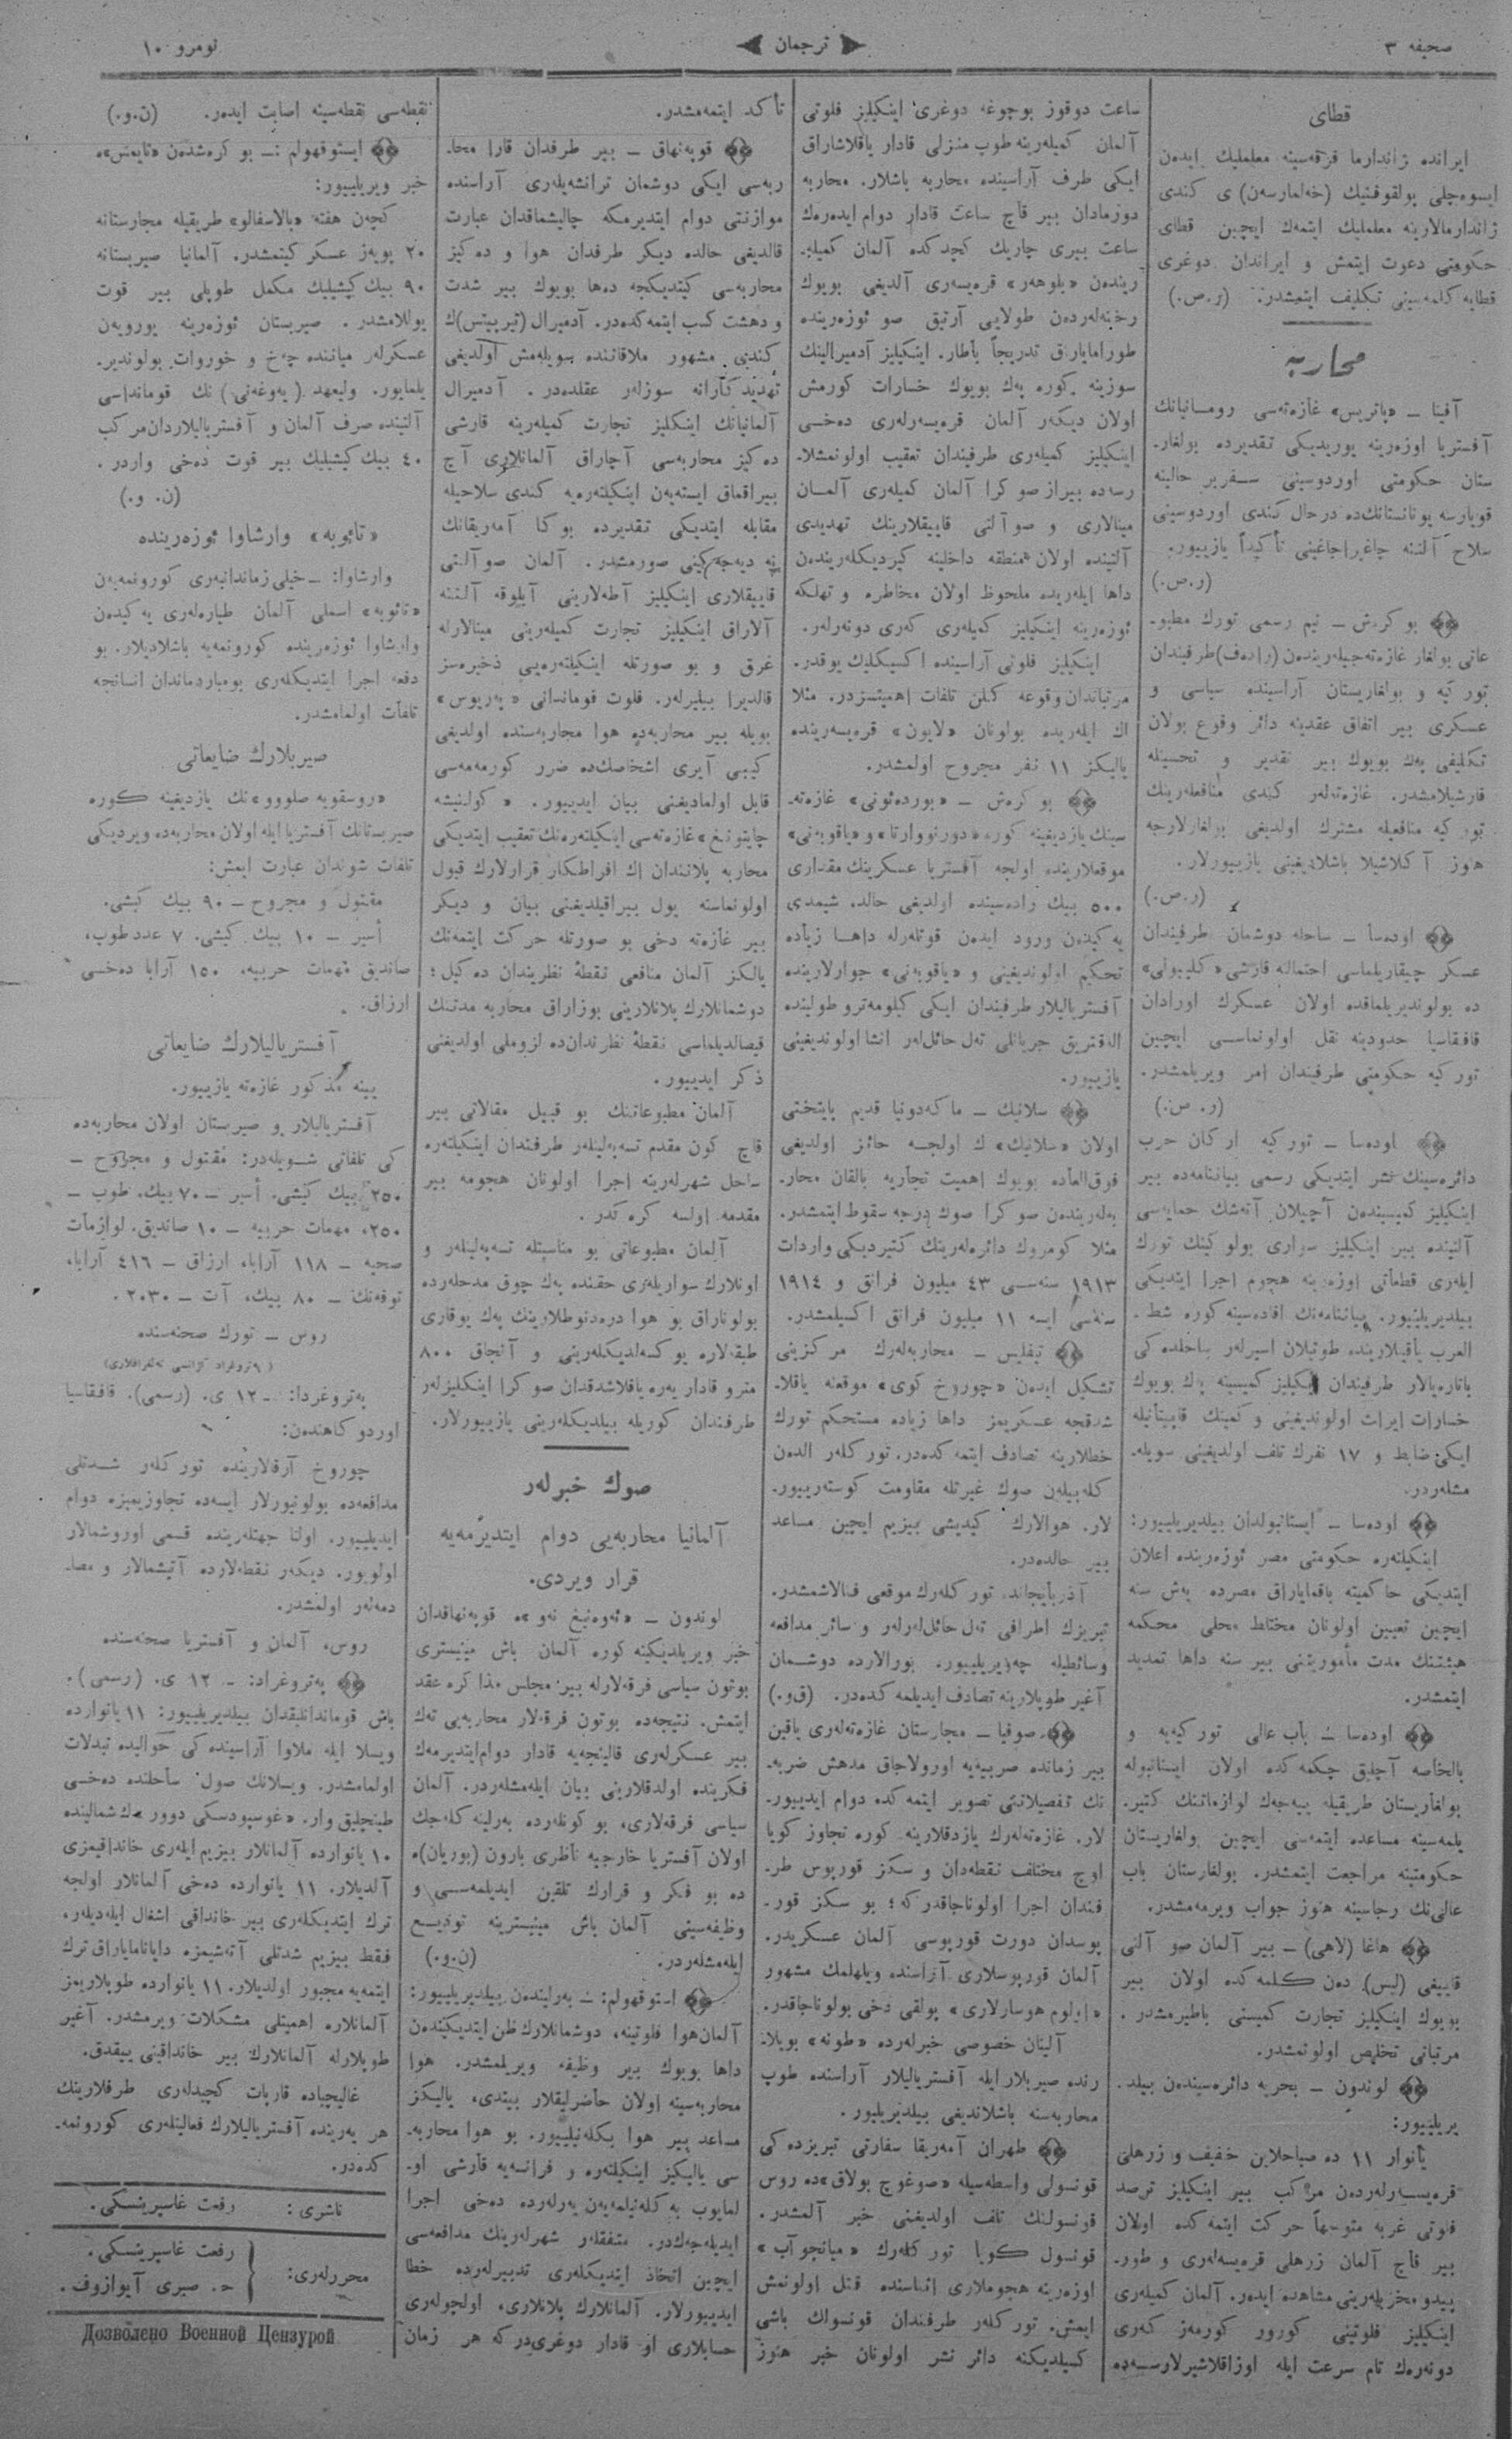 صحیفه ۳
ترجمان
نومرو ۱۰
قطای
ایرانده ژاندارما فرقه‌سینه معلملیك ایدەن
ایسوەچلی پولقوفنیك (خه‌لمارسەن) ی كندی
ژاندارمالارینه معلملیك ایتمەك ایچین قطای
حكومتی دعوت ایتمش و ایراندان دوغری
قطایه كلمه‌سینی تكلیف ایتمشدر. (ر.ص.)
محاربه
آفینا – «پاتریس» غازەته‌سی رومـانیانك
آفستریا اوزەرینه یوریدیكی تقدیردە بولغار-
ستان حكومتی اوردوسینی سـفربر حالینه
قویارسه یونانستانك‌ده درحال كندی اوردوسینی
سلاح آلتنه چاغیراجاغینی تأكیداً یازییور.
(ر.ص.)
بوكرەش – نیم رسمی تورك مطبو-
عاتی بولغار غازەته‌جیلەریندن (رادەف) طرفیندان
توركیه و بولغاریستان آراسینده سیاسی و
عسكری بیر اتفاق عقدینه دائر وقوع بولان
تكلیفی پەك بویوك بیر تقدیر و تحسینله
قارشیلامشدر. غازەتەلەر كندی منافعلەرینك
توركیه منافعیله مشترك اولدیغی بولغارلارجه
هنوز آكلاشیلا باشلادیغینی یازییورلار.
(ر.ص.)
اودەسا – ساحله دوشمان طرفیندان
عسكر چیقاریلماسی احتماله قارشی «كلیبولی»
دە بولوندیریلماقده اولان عسكرك اورادان
قافقاسیا حدودینه نقل اولونماسـی ایچین
توركیه حكومتی طرفیندان امر ویریلمشدر.
(ر. ص.)
اودەسا – توركیه اركان حرب
دائرەسینك نشر ایتدیكی رسمی بیاننامه‌ده بیر
اینكیلیز كمیسیندەن آچیلان آتەشك حمایه‌سی
آلتینده بیر اینكیلیز سواری بولوكینك تورك
ایلەری قطعاتی اوزەرینه هجوم اجرا ایتدیكی
بیلدیریلییور. بیاننامەنك افاده‌سینه كوره شط-
العرب یاقیلاریندە طوتیلان اسیرلەر ساحلده‌كی
باتاریالار طرفیندان اینكیلیز كمیسینه پەك بویوك
خسارات ایراث اولوندیغینی و كمینك قاپیتانیله
ایكی ضابط و ۱۷ نفرك تلف اولدیغینی سویله-
مشلەردر.
اودەسا – ایستانبولدان بیلدیریلییور:
اینكیلتەره حكومتی مصر ئوزەرینده اعلان
ایتدیكی حاكمیته باقمایاراق مصرده بەش سنه
ایچین تعیین اولونان مختلط محلی محكمه
هیئتنك مدت مأموریتنی بیر سنه داها تمدید
ایتمشدر.
اودەسا – باب عالی توركیەیه و
بالخاصه آچلیق چكمەكده اولان ایستانبوله
بولغاریستان طریقیله ییەجەك لوازماتنك كتیر-
یلمەسینه مساعده ایتمەسی ایچین بولغاریستان
حكومتینه مراجعت ایتمشدر. بولغارستان باب
عالی‌نك رجاسینه هنوز جواب ویرمەمشدر.
هاغا (لاهی) – بیر آلمان صو آلتی
قاییغی (لیس) دەن كلمەكده اولان بیر
بویوك اینكیلیز تجارت كمیسنی باطیرمشدر.
مرتباتی تخلیص اولونمشدر.
لوندون – بحریه دائرەسیندەن بیلد-
یریلییور:
یانوار ۱۱ دە صباحلاین خفیف و زرهلی
قرەیسـەرلەردەن مركب بیر اینكیلیز ترصد
فلوتی غربه متوجهاً حركت ایتمەكده اولان
بیر قاچ آلمان زرهلی قرەیسەلەری و طور-
پیدو مخریبلەرینی مشاهده ایدەر. آلمان كمیلەری
اینكیلیز فلوتینی كورور كورمەز كەری
دونەرەك تام سرعت ایله اوزاقلاشیرلارسـه‌ده
ساعت دوقوز بوچوغه دوغری اینكیلیز فلوتی
آلمان كمیلەرینه طوپ منزلی قادار یاقلاشاراق
ایكی طرف آراسینده محاربه باشلار. محاربه
دوزمادان بیر قاچ ساعت قادار دوام ایدەرەك
ساعت بیری چاریك كچدكده آلمان كمیلە-
ریندەن «بلوهەر» قرەیسەری آلدیغی بویوك
رخنەلەردەن طولایی آرتیق صو ئوزەرینده
طورامایاراق تدریجاً باطار. اینكیلیز آدمیرالینك
سوزینه كوره پەك بویوك خسارات كورمش
اولان دیكەر آلمان قرەیسەرلەری دەخـی
اینكیلیز كمیلەری طرفیندان تعقیب اولونمشلا-
رسه‌ده بیراز صوكرا آلمان كمیلەری آلمـان
مینالاری و صو آلتی قاییقلارینك تهدیدی
آلتینده اولان منطقه داخلینه كیردیكلەریندەن
داها ایلەریده ملحوظ اولان مخاطره و تهلكه
ئوزەرینه اینكیلیز كمیلەری كەری دونەرلەر.
اینكیلیز فلوتی آراسینده اكسیكلیك یوقدر.
مرتباتدان وقوعه كلن تلفات اهمیتسزدر. مثلا
اك ایلەریده بولونان «لایون» قرەیسەرینده
یالیكز ۱۱ نفر مجروح اولمشدر.
بوكرەش – «بوردەئونی» غازەتە-
سینك یازدیغینه كوره «دورنووارتا» و «یاقوبەنی»
موقعلارینده اولجه آفستریا عسكرینك مقداری
۵۰۰ بیك رادەسینده اولدیغی حالده شیمدی
یەكیدەن ورود ایدەن قوتلەرله داهـا زیاده
تحكیم اولوندیغینی و «یاقوبەنی» جوارلارینده
آفستریالیلار طرفیندان ایكی كیلومەترو طولینده
الەقتریق جریانلی تەل حائل‌لەر انشا اولوندیغینی
یازییور.
سلانیك – ماكەدونیا قدیم پایتختی
اولان «سلانیك» ك اولجـه حائز اولدیغی
فوق‌العاده بویوك اهمیت تجاریه بالقان محار-
بەلەریندەن صوكرا صوك درجه سقوط ایتمشدر.
مثلا كومروك دائرەلەرینك كتیردیكی واردات
۱۹۱۳ سنەسـی ۴۳ میلیون فرانق و ۱۹۱۴
سنەسی ایسه ۱۱ میلیون فرانق اكسیلمشدر.
تیفلیس – محاربەلەرك مركزینی
تشكیل ایدەن «چوروخ كوی» موقعنه یاقلا-
شدقجه عسكریمز داها زیاده مستحكم تورك
خطلارینه تصادف ایتمەكدەدر. توركلەر الدەن
كلەبیلەن صوك غیرتله مقاومت كوستەریییور-
لار. هوالارك كیدیشی بیزیم ایچین مساعد
بیر حالدەدر.
آذربایجاندە توركلەرك موقعی فنالاشمشدر.
تبریزك اطرافی تەل حائل‌لەرلەر و سائر مدافعه
وسائطیله چەویریلییور. بورالارده دوشـمان
آغیر طوپلارینه تصادف ایدیلمەكدەدر. (ق.و.)
صوفیا – مجارستان غازەتەلەری یاقین
بیر زمانده صربیەیه اورولاجاق مدهش ضربە-
نك تفصیلاتنی تصویر ایتمەكده دوام ایدییور-
لار. غازەتەلەرك یازدقلارینه كوره تجاوز كویا
اوچ مختلف نقطەدان و سكز قورپوس طر-
فندان اجرا اولوناجاقدركه؛ بو سكز قور-
پوسدان دورت قورپوسی آلمان عسكریدر.
آلمان قورپوسلاری آراسنده ویلهلمك مشهور
«اولوم هوسارلاری» پولقی دخی بولوناجاقدر.
آلینان خصوصی خبرلەرده «طونه» بویلا-
رنده صیربلار ایله آفستریالیلار آراسنده طوپ
محاربەسنه باشلاندیغی بیلدیریلیور.
طهران آمەریقا سفارتی تبریزدەكی
قونسولی واسطەسیله «صوغوج بولاق»ده روس
قونسولنك تلف اولدیغینی خبر آلمشدر.
قونسول كویا توركلەرك «میانجوآب»
اوزەرینه هجوملاری اثناسنده قتل اولونمش
ایمش. توركلەر طرفندان قونسولك باشی
كسیلدیكنه دائر نشر اولونان خبر هنوز
تأكد ایتمەمشدر.
قوپەنهاق – بیر طرفدان قارا محا-
ربەسی ایكی دوشمان ترانشەیلەری آراسنده
موازنتی دوام ایتدیرمكه چالیشماقدان عبارت
قالدیغی حالده دیكر طرفدان هوا و دەكیز
محاربەسی كیتدیكجه دەها بویوك بیر شدت
و دهشت كسب ایتمەكدەدر. آدمیرال (تیرپیتس)ك
كندی مشهور ملاقاتنده سویلەمش اولدیغی
تهدیدكارانه سوزلەر عقلدەدر. آدمیرال
آلمانیانك اینكلیز تجارت كمیلەرینه قارشی
دەكیز محاربەسی آچاراق آلمانلاری آچ
بیراقماق ایستەیەن اینكیلتەرەیه كندی سلاحیله
مقابله ایتدیكی تقدیرده بوكا آمەریقانك
نه دییەجەكینی صورمشدر. آلمان صو آلتی
قاییقلاری اینكیلیز آطەلارینی آبلوقه آلتنه
آلاراق اینكیلیز تجارت كمیلەرینی مینالارله
غرق و بو صورتله اینكیلتەرەیی ذخیرەسز
قالدیرا بیلیرلەر. فلوت قومماندانی «بەریوس»
بویله بیر محاربەده هوا محاربەسنده اولدیغی
كیبی آیری اشخاصك‌ده ضرر كورمەمەسی
قابل اولمادیغنی بیان ایدییور. «كولنیشه
چایتونغ» غازەتەسی اینكیلتەرەنك تعقیب ایتدیكی
محاربه پلانندان اك افراطكار قرارلارك قبول
اولونماسنه یول بیراقیلدیغنی بیان و دیكر
بیر غازەته دخی بو صورتله حركت ایتمەنك
یالكز آلمان منافعی نقطۀ نظریندان دەكیل؛
دوشمانلارك پلانلارینی بوزاراق محاربه مدتنك
قیصالدیلماسی نقطۀ نظرندان‌ده لزوملی اولدیغنی
ذكر ایدییور.
آلمان مطبوعاتنك بو قبیل مقالاتی بیر
قاچ كون مقدم تسەپەلینلەر طرفندان اینكیلتەره
ساحل شهرلەرینه اجرا اولونان هجومه بیر
مقدمه اولسه كرەكدر.
آلمان مطبوعاتی بو مناسبتله تسەپەلینلەر و
اونلارك سواریلەری حقنده پەك چوق مدحلەرده
بولوناراق بو هوا درەدنوطلارینك پەك یوقاری
طبقەلاره یوكسەلدیكلەرینی و آنجاق ۸۰۰
مترو قادار یەره یاقلاشدقدان صوكرا اینكلیزلەر
طرفندان كوریله بیلدیكلەرینی یازییورلار.
صوك خبرلەر
آلمانیا محاربەیی دوام ایتدیرمەیه
قرار ویردی.
لوندون – «ئەوەنینغ نەو»ه قوپەنهاقدان
خبر ویریلدیكینه كوره آلمان باش مینیستری
بوتون سیاسی فرقەلارله بیر مجلس مذاكره عقد
ایتمش. نتیجەده بوتون فرقەلار محاربەیی تەك
بیر عسكرلەری قالینجەیه قادار دوام ایتدیرمەك
فكرینده اولدقلارینی بیان ایلەمشلەردر. آلمان
سیاسی فرقەلاری، بو كونلەرده بەرلینه كلەجك
اولان آفستریا خارجیه ناظری بارون (بوریان)ه
دە بو فكر و قرارك تلقین ایدیلمەسـی و
وظیفەسینی آلمان باش مینیسترینه تودیـع
ایلەمشلەردر. (ن.و.)
استوقهولم: – بەرلیندەن بیلدیریلییور:
آلمان هوا فلوتینه، دوشمانلارك ظن ایتدیكیندەن
داها بویوك بیر وظیفه ویریلمشدر. هوا
محاربەسینه اولان حاضرلیقلار بیتدی، یالیكز
مساعد بیر هوا بكلەنیلییور. بو هوا محاربە-
سی یالیكز اینكیلتەره و فرانسەیه قارشی او-
لمایوب بەكلەنیلمەیەن یەرلەرده دەخی اجرا
ایدیلەجەكدر. متفقلەر شهرلەرینك مدافعەسی
ایچین اتخاذ ایتدیكلەری تدبیرلەرده خطا
ایدییورلار. آلمانلارك پلانلاری، اولچولەری
حسابلاری او قادار دوغری‌دركه هر زمان
نقطەسی نقطەسینه اصابت ایدەر. (ن.و.)
ایستوقهولم: – بو كرەشدەن «تایمس»ه
خبر ویریلییور:
كچەن هفته «بالاسفالو» طریقیله مجارستانه
۲۰ پویەز عسكر كیتمشدر. آلمانیا صیربستانه
۹۰ بیك كیشیلیك مكمل طوپلی بیر قوت
یوللامشدر. صیربستان ئوزەرینه یورویەن
عسكرلەر میاننده چەخ و خوروات بولوندیر-
یلمایور. ولیعهد (یەوغەنی) نك قوماندا‌سی
آلتینده صرف آلمان و آفستریالیلاردان مركب
۴۰ بیك كیشیلیك بیر قوت دەخی واردر.
(ن. و.)
«تائوبه» وارشاوا ئوزەرینده
وارشاوا: – خیلی زماندانبەری كورونمەیەن
«تائوبه» اسملی آلمان طیارەلەری یەكیدەن
وارشاوا ئوزەرینده كورونمەیه باشلادیلار. بو
دفعه اجرا ایتدیكلەری بومباردماندان انسانجه
تلفات اولمامشدر.
صیربلارك ضایعاتی
«روسقویه صلووو»نك یازدیغینه كوره
صیربستانك آفستریا ایله اولان محاربەده ویردیكی
تلفات شوندان عبارت ایمش:
مقتول و مجروح – ۹۰ بیك كیشی.
أسیر – ۱۰ بیك كیشی. ۷ عدد طوپ،
صاندیق مهمات حربیه. ۱۵۰ آرابا دەخـی
ارزاق.
آفستریالیلارك ضایعاتی
یینه مذكور غازەته یازییور.
آفستریالیلار و صیربستان اولان محاربەده
كی تلفاتی شـویلەدر: مقتول و مجروح –
۲۵۰ بیك كیشی. أسیر – ۷۰ بیك. طوپ –
۲۵۰. مهمات حربیه – ۱۰ صاندیق. لوازمات
صحیه – ۱۱۸ آرابا، ارزاق – ۴۱۶ آرابا،
توفەنك – ۸۰ بیك، آت – ۲۰۳۰.
روس – تورك صحنەسنده
(پەتروغراد آژانسی تەلغرافلاری)
پەتروغراد: – ۱۲ ی. (رسمی). قافقاسیا
اوردوكاهندەن:
چوروخ آرقالارینده توركلەر شـدتلی
مدافعەده بولونیورلار ایسەده تجاوزیمیزه دوام
ایدیلییور. اولتا جهتلەرینده قسمی اوروشمالار
اولویور. دیكەر نقطەلارده آتیشمالار و مصا-
دمەلەر اولمشدر.
روس، آلمان و آفستریا صحنەسنده
پەتروغراد: – ۱۲ ی. (رسمی).
باش قوماندانلیقدان بیلدیریلییور: ۱۱ یانوارده
ویسلا ایله ملاوا آراسینده‌كی حوالیده تبدلات
اولمامشدر. ویسلانك صول ساحلنده دەخـی
طینجلیق وار. «غوسپودسكی دوور»ك شمالینده
۱۰ یانوارده آلمانلار بیزیم ایلەری خانداقیمزی
آلدیلار. ۱۱ یانوارده دەخی آلمانلار اولجه
ترك ایتدیكلەری بیر خانداقی اشغال ایلەدیلەر،
فقط بیزیم شدتلی آتەشیمزه دایانامایاراق ترك
ایتمەیه مجبور اولدیلار. ۱۱ یانوارده طوپلاریمز
آلمانلاره اهمیتلی مشكلات ویرمشدر. آغیر
طوپلارله آلمانلارك بیر خانداقینی ییقدق.
غالیچیاده قارپات كچیدلەری طرفلارینك
هر یەرینده آفستریالیلارك فعالیتلەری كورونمە-
كدەدر.
ناشری: رفعت غاسپرینسكی.
محررلەری: رفعت غاسپرینسكی.
ح. صبری آیوازوف.
Дозволено Военной Цензурой